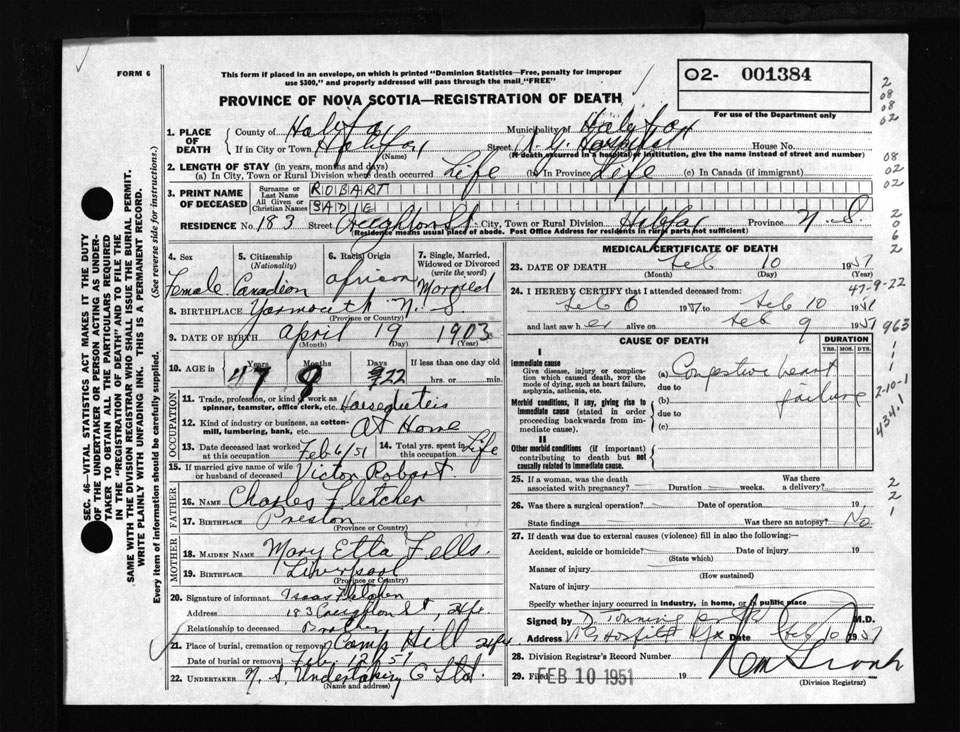 FORM 6
This form if placed in an envelope, on which is printed "Dominion Statistics—Free, penalty for improper
use $300," and properly addressed will pass through the mail "FREE"
O2- 001384
For use of the Department only
PROVINCE OF NOVA SCOTIA—REGISTRATION OF DEATH
1. PLACE OF DEATH
County of Halifax Municipality of Halifax
If in City or Town Halifax (Name) Street V. G. Hospital House No.
(If death occurred in a hospital or institution, give the name instead of street and number)
2. LENGTH OF STAY (in years, months and days)
(a) In City, Town or Rural Division where death occurred Life (b) In Province Life (c) In Canada (if immigrant)
3. PRINT NAME OF DECEASED
Surname or Last Name ROBART
All Given or Christian Names SADIE
RESIDENCE No. 183 Street Creighton St City, Town or Rural Division Halifax Province N. S.
(Residence means usual place of abode. Post Office Address for residents in rural parts not sufficient)
4. Sex Female
5. Citizenship (Nationality) Canadian
6. Racial Origin african
7. Single, Married, Widowed or Divorced (write the word) Married
8. BIRTHPLACE Yarmouth N. S.
(Province or Country)
9. DATE OF BIRTH April 19 1903
(Month) (Day) (Year)
10. AGE in Years 47 Months 9 Days 22 If less than one day old
hrs. or min.
OCCUPATION
11. Trade, profession, or kind of work as
spinner, teamster, office clerk, etc.
12. Kind of industry or business, as cotton-
mill, lumbering, bank, etc. At Home
13. Date deceased last worked at this occupation Feb 6/51
14. Total yrs. spent in this occupation Life
15. If married give name of wife
or husband of deceased Victor Robart.
FATHER
16. NAME Charles Fletcher
17. BIRTHPLACE Preston
(Province or Country)
MOTHER
18. MAIDEN NAME Mary Etta Fells.
19. BIRTHPLACE Liverpool
(Province or Country)
20. Signature of informant Isaac Fletcher
Address 183 Creighton St, Hfx.
Relationship to deceased Brother
21. Place of burial, cremation or removal Camp Hill Hfx
Date of burial or removal Feb. 12/51
22. UNDERTAKER N. S. Undertaking C Ltd.
(Name and address)
MEDICAL CERTIFICATE OF DEATH
23. DATE OF DEATH Feb 10 1951
(Month) (Day) (Year)
47-9-22
24. I HEREBY CERTIFY that I attended deceased from:
Feb 6 1951 to Feb 10 1951
and last saw her alive on Feb 9 1951
CAUSE OF DEATH
DURATION
YRS. MOS. DYS.
I
Immediate cause
Give disease, injury or complication which caused death, not the mode of dying, such as heart failure, asphyxia, asthenia, etc.
(a) Congestive heart failure
due to
Morbid conditions, if any, giving rise to immediate cause (stated in order proceeding backwards from immediate cause).
(b)
due to
(c)
II
Other morbid conditions (if important) contributing to death but not causally related to immediate cause.
25. If a woman, was the death
associated with pregnancy? Duration weeks. Was there a delivery?
26. Was there a surgical operation? Date of operation 19
State findings Was there an autopsy? No
27. If death was due to external causes (violence) fill in also the following:—
Accident, suicide or homicide? Date of injury 19
(State which)
Manner of injury
(How sustained)
Nature of injury
Specify whether injury occurred in industry, in home, or in public place
Signed by M.D.
Address V G Hospital Hfx Date Feb 10 1951
28. Division Registrar's Record Number
29. Filed FEB 10 1951 19
(Division Registrar)
SEC. 46—VITAL STATISTICS ACT MAKES IT THE DUTY
OF THE UNDERTAKER OR PERSON ACTING AS UNDER-
TAKER TO OBTAIN ALL THE PARTICULARS REQUIRED
IN THE "REGISTRATION OF DEATH" AND TO FILE THE
SAME WITH THE DIVISION REGISTRAR WHO SHALL ISSUE THE BURIAL PERMIT.
WRITE PLAINLY WITH UNFADING INK. THIS IS A PERMANENT RECORD.
Every item of information should be carefully supplied. (See reverse side for instructions.)
2
08
08
02
08
02
02
2
0
6
2
963
1
1
1
2-10-1
434.1
2
2
1